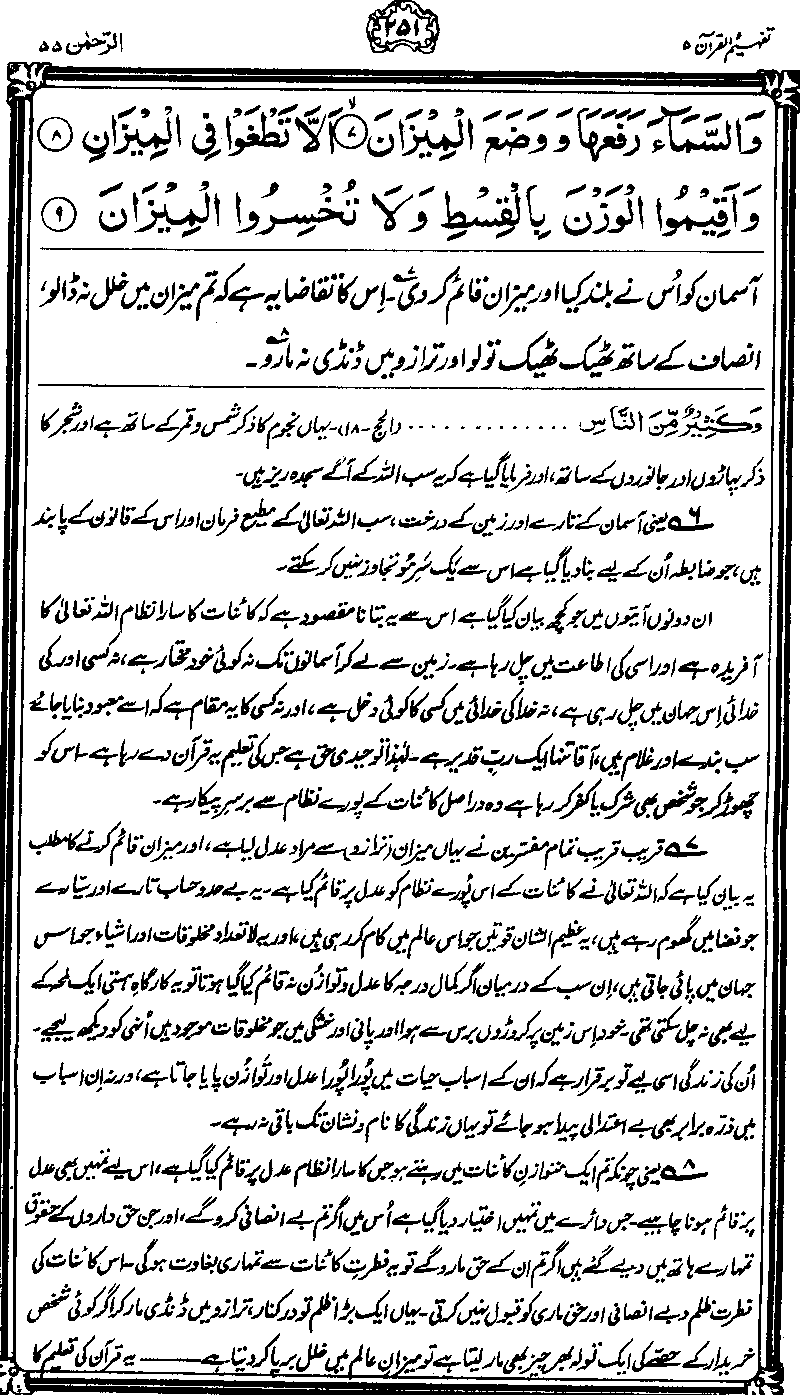 تفہیم القرآن ۵
۲۵۱
الرّحمٰن ۵۵
وَالسَّمَآءَ رَفَعَهَا وَوَضَعَ الْمِيْزَانَ ۙ﴿۷﴾ اَلَّا تَطْغَوْا فِي الْمِيْزَانِ ﴿۸﴾
وَاَقِيْمُوا الْوَزْنَ بِالْقِسْطِ وَلَا تُخْسِرُوا الْمِيْزَانَ ﴿۹﴾
آسمان کو اُس نے بلند کیا اور میزان قائم کر دی۷۔ اِس کا تقاضا یہ ہے کہ تم میزان میں خلل نہ ڈالو،
انصاف کے ساتھ ٹھیک ٹھیک تولو اور ترازو میں ڈنڈی نہ مارو۸۔
وَكَثِيْرٌ مِّنَ النَّاسِ ............. (الحج۔۱۸)۔ یہاں نجوم کا ذکر شمس و قمر کے ساتھ ہے اور شجر کا
ذکر پہاڑوں اور جانوروں کے ساتھ، اور فرمایا گیا ہے کہ یہ سب اللہ کے آگے سجدہ ریز ہیں۔
۶ یعنی آسمان کے تارے اور زمین کے درخت، سب اللہ تعالیٰ کے مطیع فرمان اور اس کے قانون کے پابند
ہیں، جو ضابطہ اُن کے لیے بنا دیا گیا ہے اس سے یک سرِ مُو تجاوز نہیں کر سکتے۔
ان دونوں آیتوں میں جو کچھ بیان کیا گیا ہے اس سے یہ بتانا مقصود ہے کہ کائنات کا سارا نظام اللہ تعالیٰ کا
آفریدہ ہے اور اسی کی اطاعت میں چل رہا ہے۔ زمین سے لے کر آسمانوں تک نہ کوئی خود مختار ہے، نہ کسی اور کی
خدائی اِس جہان میں چل رہی ہے، نہ خدا کی خدائی میں کسی کا کوئی دخل ہے، اور نہ کسی کا یہ مقام ہے کہ اسے معبود بنایا جائے
سب بندے اور غلام ہیں، آقا تنہا ایک ربِّ قدیر ہے۔ لہٰذا توحید ہی حق ہے جس کی تعلیم یہ قرآن دے رہا ہے۔ اس کو
چھوڑ کر جو شخص بھی شرک یا کفر کر رہا ہے وہ دراصل کائنات کے پورے نظام سے برسرِ پیکار ہے۔
۷ قریب قریب تمام مفسّرین نے یہاں میزان (ترازو) سے مراد عدل لیا ہے، اور میزان قائم کرنے کا مطلب
یہ بیان کیا ہے کہ اللہ تعالیٰ نے کائنات کے اس پُورے نظام کو عدل پر قائم کیا ہے۔ یہ بے حد و حساب تارے اور سیّارے
جو فضا میں گھوم رہے ہیں، یہ عظیم الشان قوتیں جو اس عالم میں کام کر رہی ہیں، اور یہ لاتعداد مخلوقات اور اشیاء جو اس
جہان میں پائی جاتی ہیں، اِن سب کے درمیان اگر کمال درجہ کا عدل و توازُن نہ قائم کیا گیا ہوتا تو یہ کارگاہِ ہستی ایک لمحہ کے
لیے بھی نہ چل سکتی تھی۔ خود اِس زمین پر کروڑوں برس سے ہوا اور پانی اور خشکی میں جو مخلوقات موجود ہیں اُنہی کو دیکھ لیجیے۔
اُن کی زندگی اسی لیے تو برقرار ہے کہ ان کے اسباب حیات میں پُورا پُورا عدل اور توازُن پایا جاتا ہے، ورنہ اِن اسباب
میں ذرّہ برابر بھی بے اعتدالی پیدا ہو جائے تو یہاں زندگی کا نام و نشان تک باقی نہ رہے۔
۸ یعنی چونکہ تم ایک متوازن کائنات میں رہتے ہو جس کا سارا نظام عدل پر قائم کیا گیا ہے، اس لیے تمہیں بھی عدل
پر قائم ہونا چاہیے۔ جس دائرے میں تمہیں اختیار دیا گیا ہے اُس میں اگر تم بے انصافی کرو گے، اور جن حق داروں کے حقوق
تمہارے ہاتھ میں دیے گئے ہیں اگر تم ان کے حق مارو گے تو یہ فطرتِ کائنات سے تمہاری بغاوت ہوگی۔ اس کائنات کی
فطرت ظلم و بے انصافی اور حق ماری کو قبول نہیں کرتی۔ یہاں ایک بڑا ظلم تو درکنار، ترازو میں ڈنڈی مار کر اگر کوئی شخص
خریدار کے حصّے کی ایک تولہ بھر چیز بھی مار لیتا ہے تو میزانِ عالم میں خلل برپا کر دیتا ہے ——— یہ قرآن کی تعلیم کا